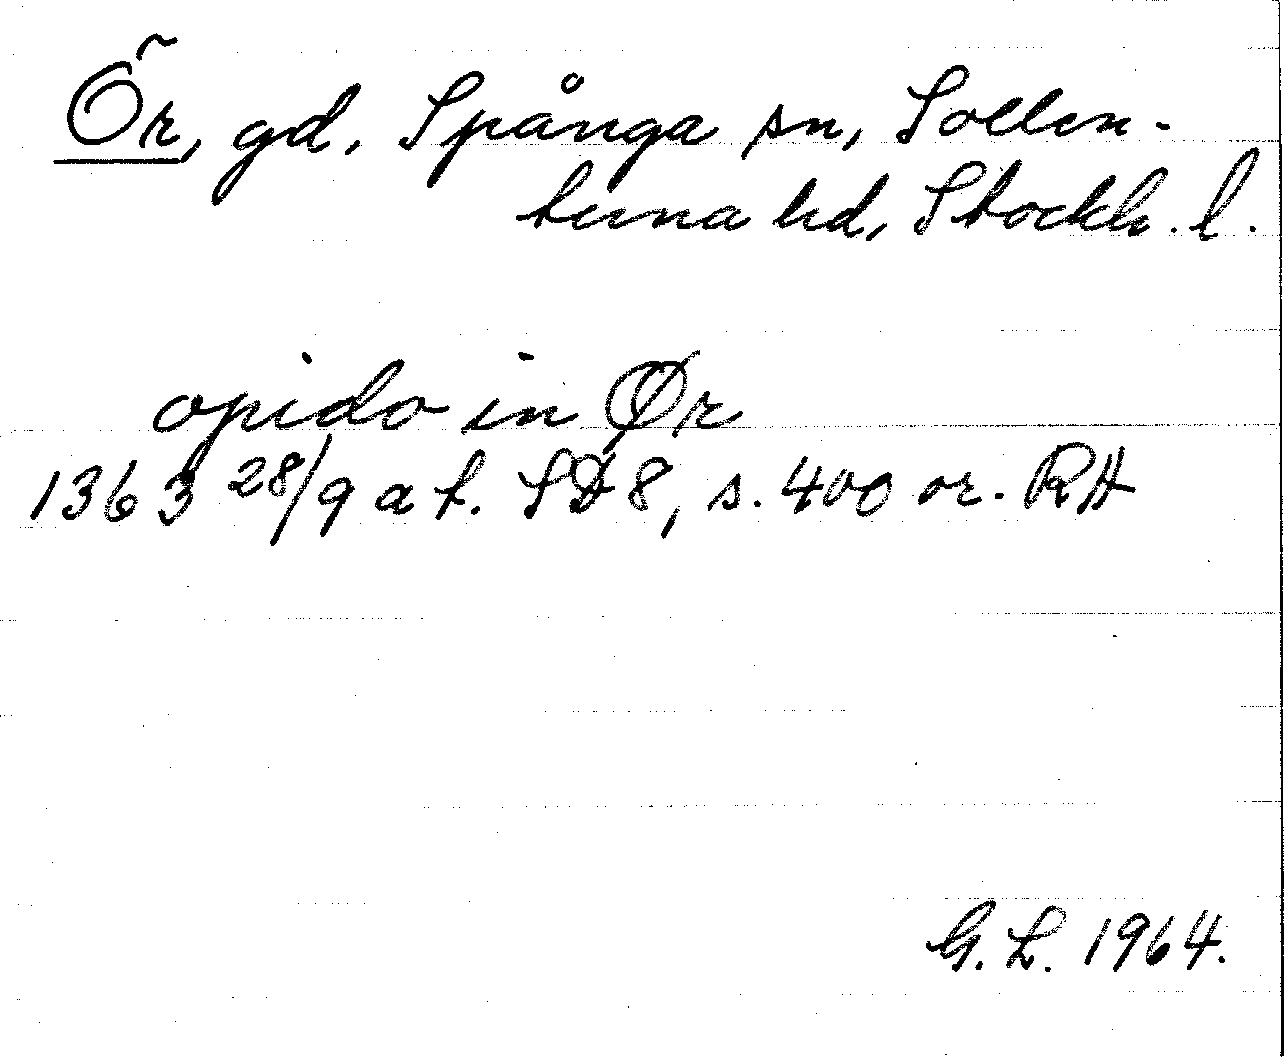 Ör, gd, Spånga sn, Sollen-
tuna hd, Stockh. l.
opido in Ør
1363 28/9 at. SD 8, s. 400 or. RA
G. L. 1964.